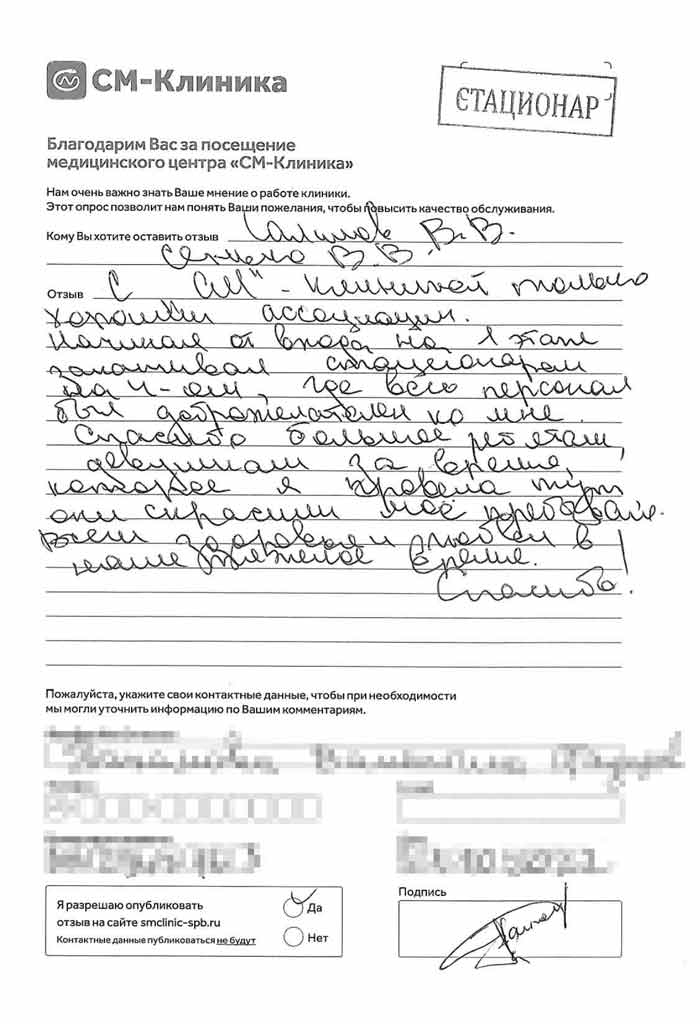 СМ-Клиника
СТАЦИОНАР
Благодарим Вас за посещение
медицинского центра «СМ-Клиника»
Нам очень важно знать Ваше мнение о работе клиники.
Этот опрос позволит нам понять Ваши пожелания, чтобы повысить качество обслуживания.
Кому Вы хотите оставить отзыв Салимов В.В.
В.В.
Отзыв С "СМ" - клиникой только
хорошие ассоциации.
Начиная от входа на 1 этаже
заканчивая стационаром
на 4-ом, где весь персонал
был доброжелателен ко мне.
Спасибо большое ребятам,
девушкам за время,
которое я провела тут
они скрасили моё пребыван.
Всем здоровья и любви в
наше тяжелое время.
Спасибо!
Пожалуйста, укажите свои контактные данные, чтобы при необходимости
мы могли уточнить информацию по Вашим комментариям.
Я разрешаю опубликовать
отзыв на сайте smclinic-spb.ru
Контактные данные публиковаться не будут
Да
Нет
Подпись